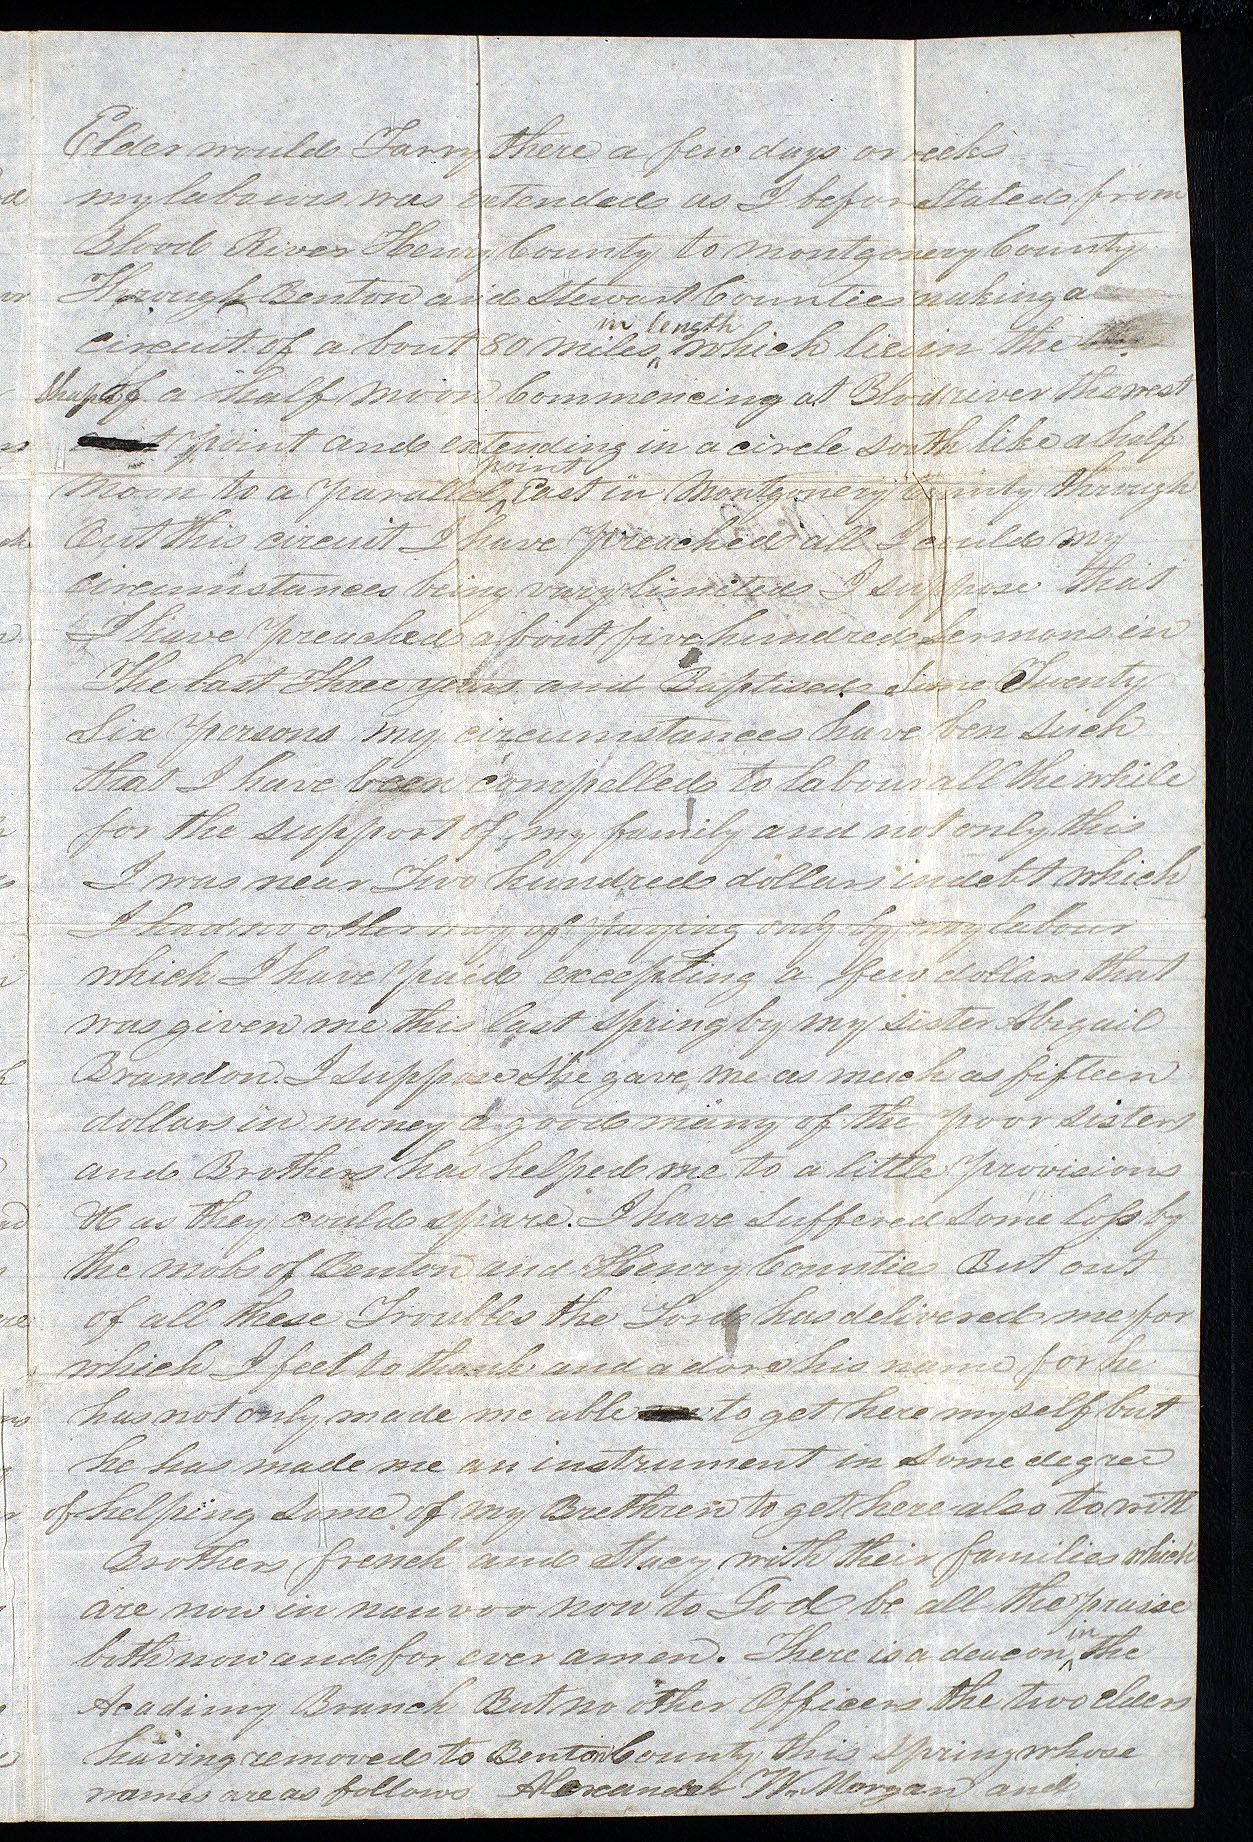 Elder would Tarry there a few days or weeks
my labours was extended as I before Stated from
Blood River Henry County to montgomery County
Through Benton and Stewart Counties making a
circuit of a bout 80 miles in length which lies in the
shape of a half moon Commencing at Blod river the west
point and extending in a circle south like a half
moon to a parallel point East in Montgomery County through
Out this circuit I have preached all I could my
circumstances being vary limited I suppose that
I have preached a bout five hundred Sermons in
The last Three years and Baptised Some Twenty
Six persons my circumstances have ben such
that I have been compelled to labour all the while
for the support of my family and not only this
I was near Two hundred dollars in debt which
I had no other way of paying only by my labour
which I have paid excepting a few dollars that
was given me this last spring by my sister Abigail
Brandon. I suppose She gave me as much as fifteen
dollars in money a good many of the poor sisters
and Brothers has helped me to a little provisions
as they could spare. I have suffered some loss by
the mobs of Benton and Henry Counties But out
of all these Troubles the Lord has delivered me for
which I feel to thank and adore his name for he
has not only made me able to get here myself but
he has made me an instrument in some degree
of helping some of my Brethren to get here also to with
Brothers french and Stacy with their families which
are now in nauvoo now to God be all the praise
both now and for ever amen. There is a deacon in the
Acadimy Branch But no other Officers the two elders
having removed to Benton County this spring whose
names are as follows Alexander W. Morgan and